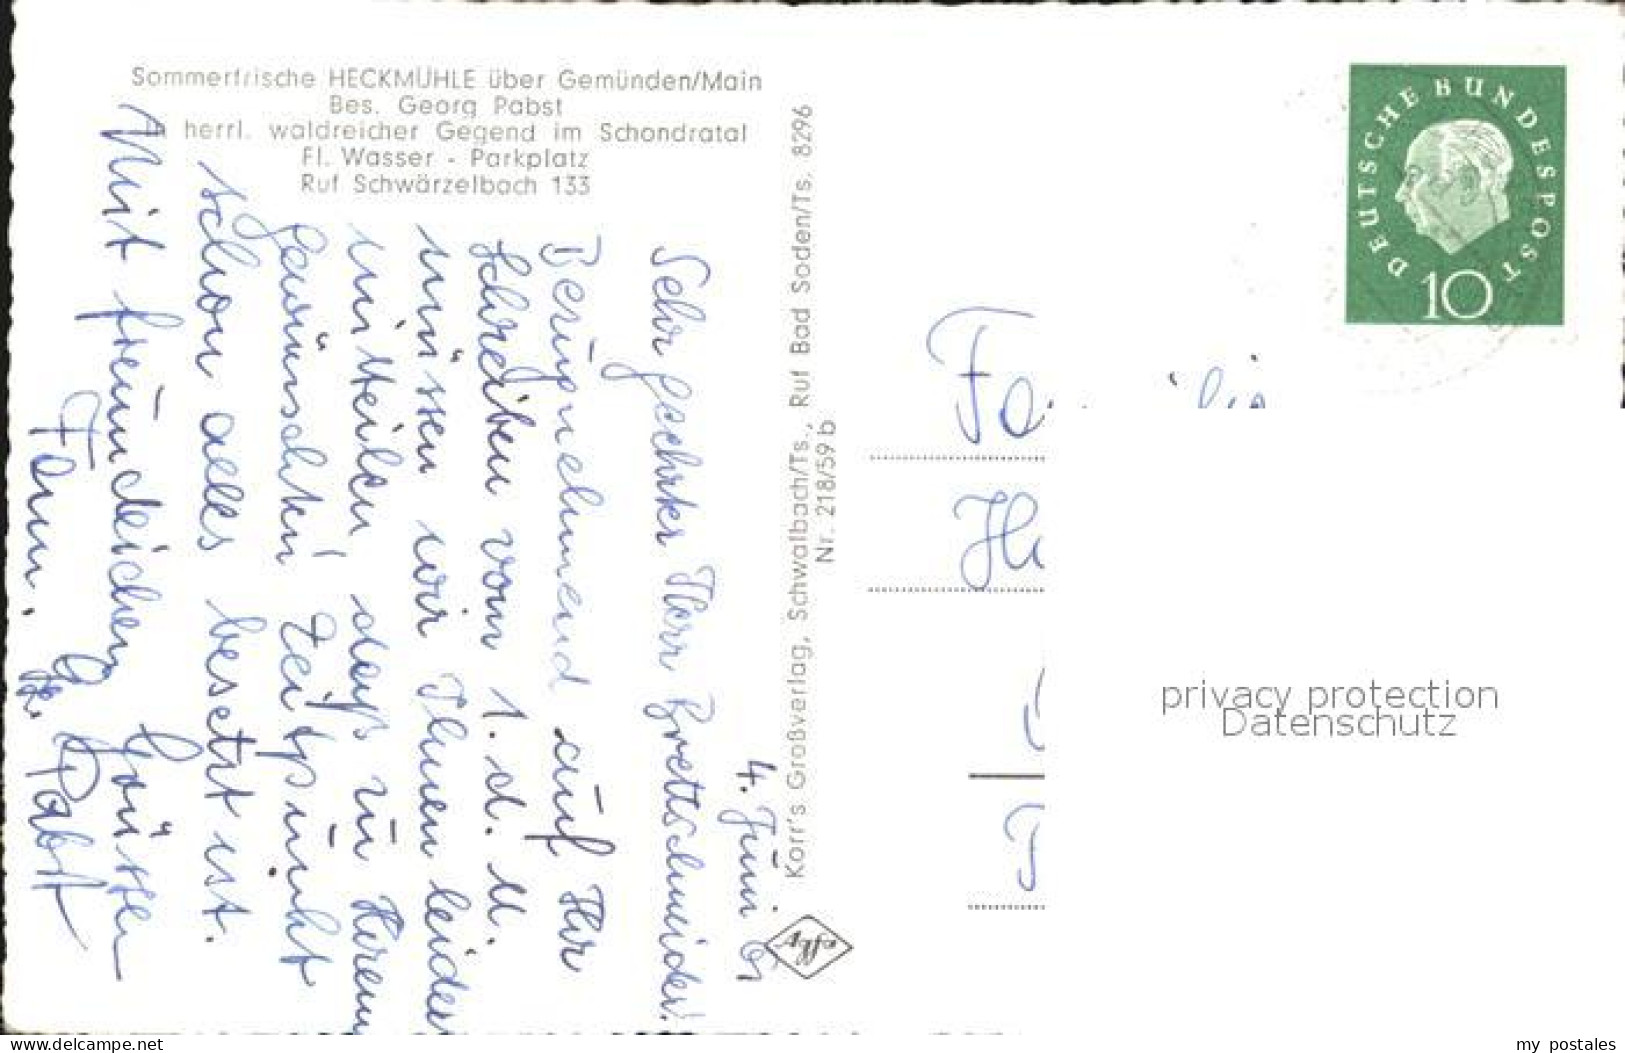 Sommerfrische HECKMÜHLE über Gemünden/Main
Bes. Georg Pabst
In herrl. waldreicher Gegend im Schondratal
Fl. Wasser - Parkplatz
Ruf Schwärzelbach 133
4. Juni 61
Sehr geehrter Herr Brettschneider!
Bezugnehmend auf Ihr
Schreiben vom 1. d. M.
müssen wir Ihnen leider
mitteilen, daß zu Ihrem
gewünschten Zeitpunkt
schon alles besetzt ist.
Mit freundlichen Grüssen
Fam. G. Pabst
Korr's Großverlag, Schwalbach/Ts., Ruf Bad Soden/Ts. 8296
Nr. 218/59 b
DEUTSCHE BUNDESPOST
10
privacy protection
Datenschutz
www.delcampe.net
my_postales